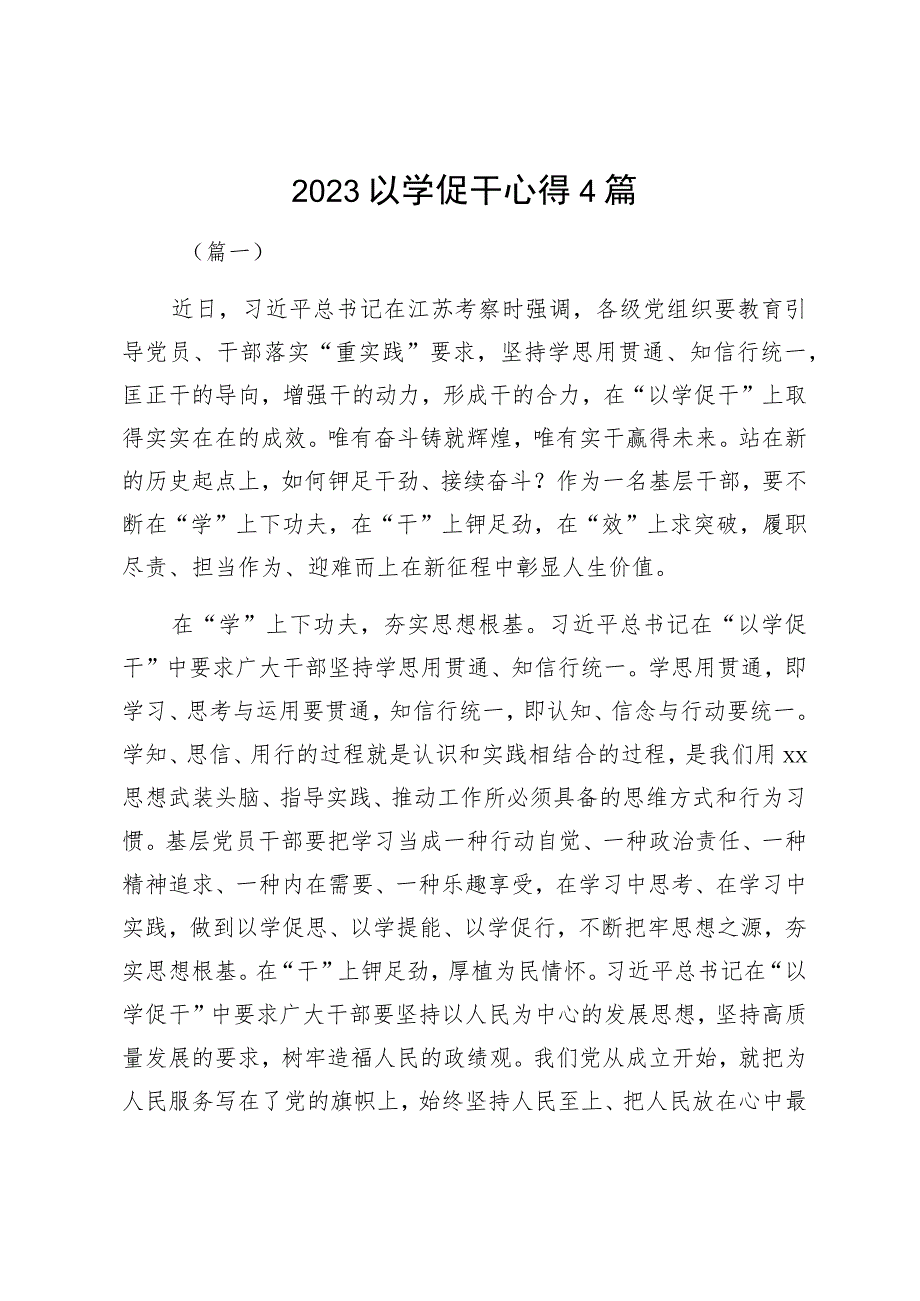 2023以学促干心得4篇
（篇一）
近日，习近平总书记在江苏考察时强调，各级党组织要教育引
导党员、干部落实“重实践”要求，坚持学思用贯通、知信行统一，
匡正干的导向，增强干的动力，形成干的合力，在“以学促干”上取
得实实在在的成效。唯有奋斗铸就辉煌，唯有实干赢得未来。站在新
的历史起点上，如何钾足干劲、接续奋斗？作为一名基层干部，要不
断在“学”上下功夫，在“干”上钾足劲，在“效”上求突破，履职
尽责、担当作为、迎难而上在新征程中彰显人生价值。
在“学”上下功夫，夯实思想根基。习近平总书记在“以学促
干”中要求广大干部坚持学思用贯通、知信行统一。学思用贯通，即
学习、思考与运用要贯通，知信行统一，即认知、信念与行动要统一。
学知、思信、用行的过程就是认识和实践相结合的过程，是我们用xx
思想武装头脑、指导实践、推动工作所必须具备的思维方式和行为习
惯。基层党员干部要把学习当成一种行动自觉、一种政治责任、一种
精神追求、一种内在需要、一种乐趣享受，在学习中思考、在学习中
实践，做到以学促思、以学提能、以学促行，不断把牢思想之源，夯
实思想根基。在“干”上钾足劲，厚植为民情怀。习近平总书记在“以
学促干”中要求广大干部要坚持以人民为中心的发展思想，坚持高质
量发展的要求，树牢造福人民的政绩观。我们党从成立开始，就把为
人民服务写在了党的旗帜上，始终坚持人民至上、把人民放在心中最